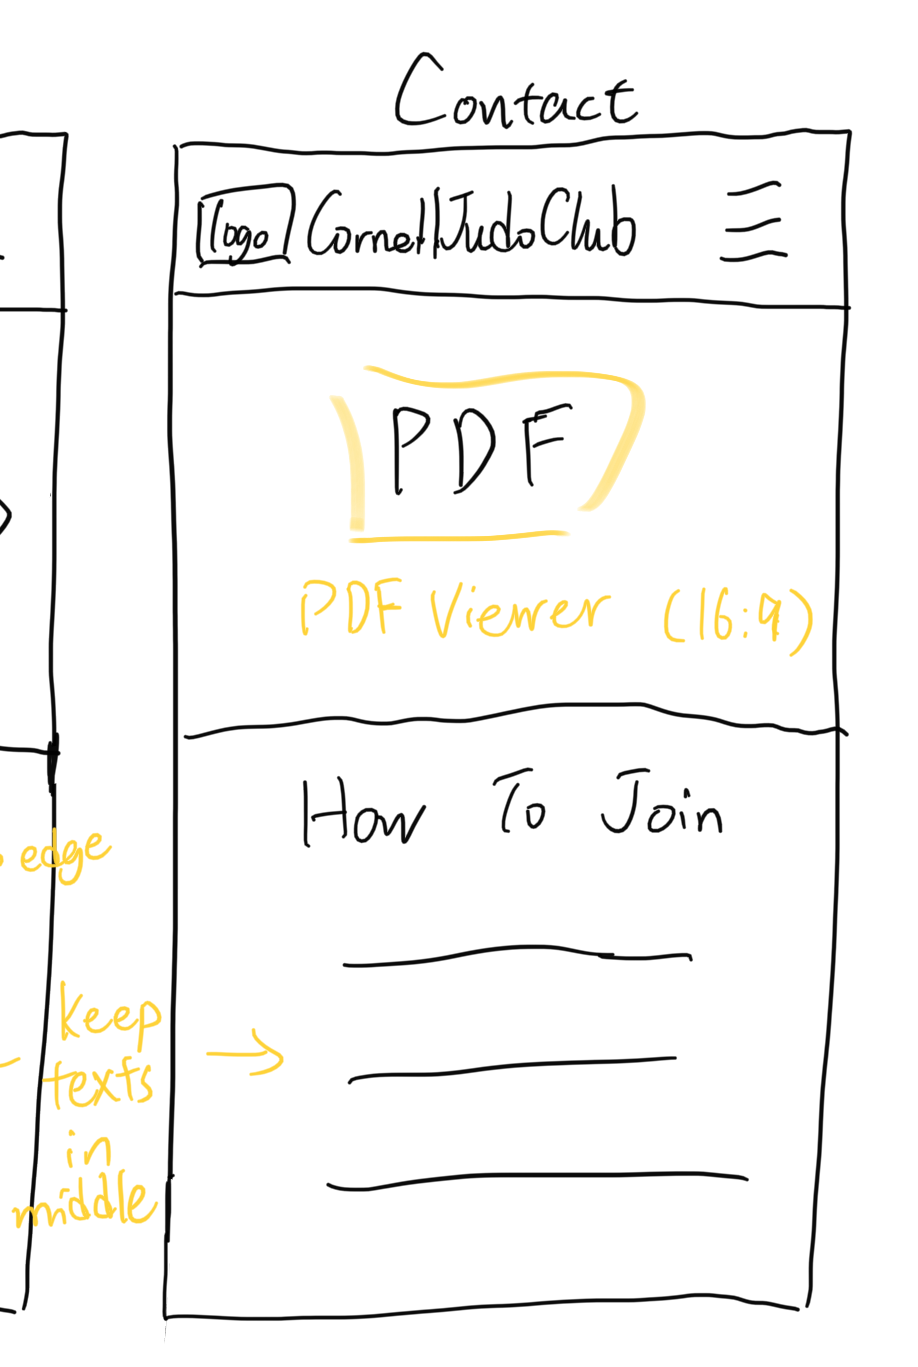 Contact
logo Cornell Judo Club
PDF
PDF Viewer (16:9)
How To Join
edge
keep
texts
in
middle